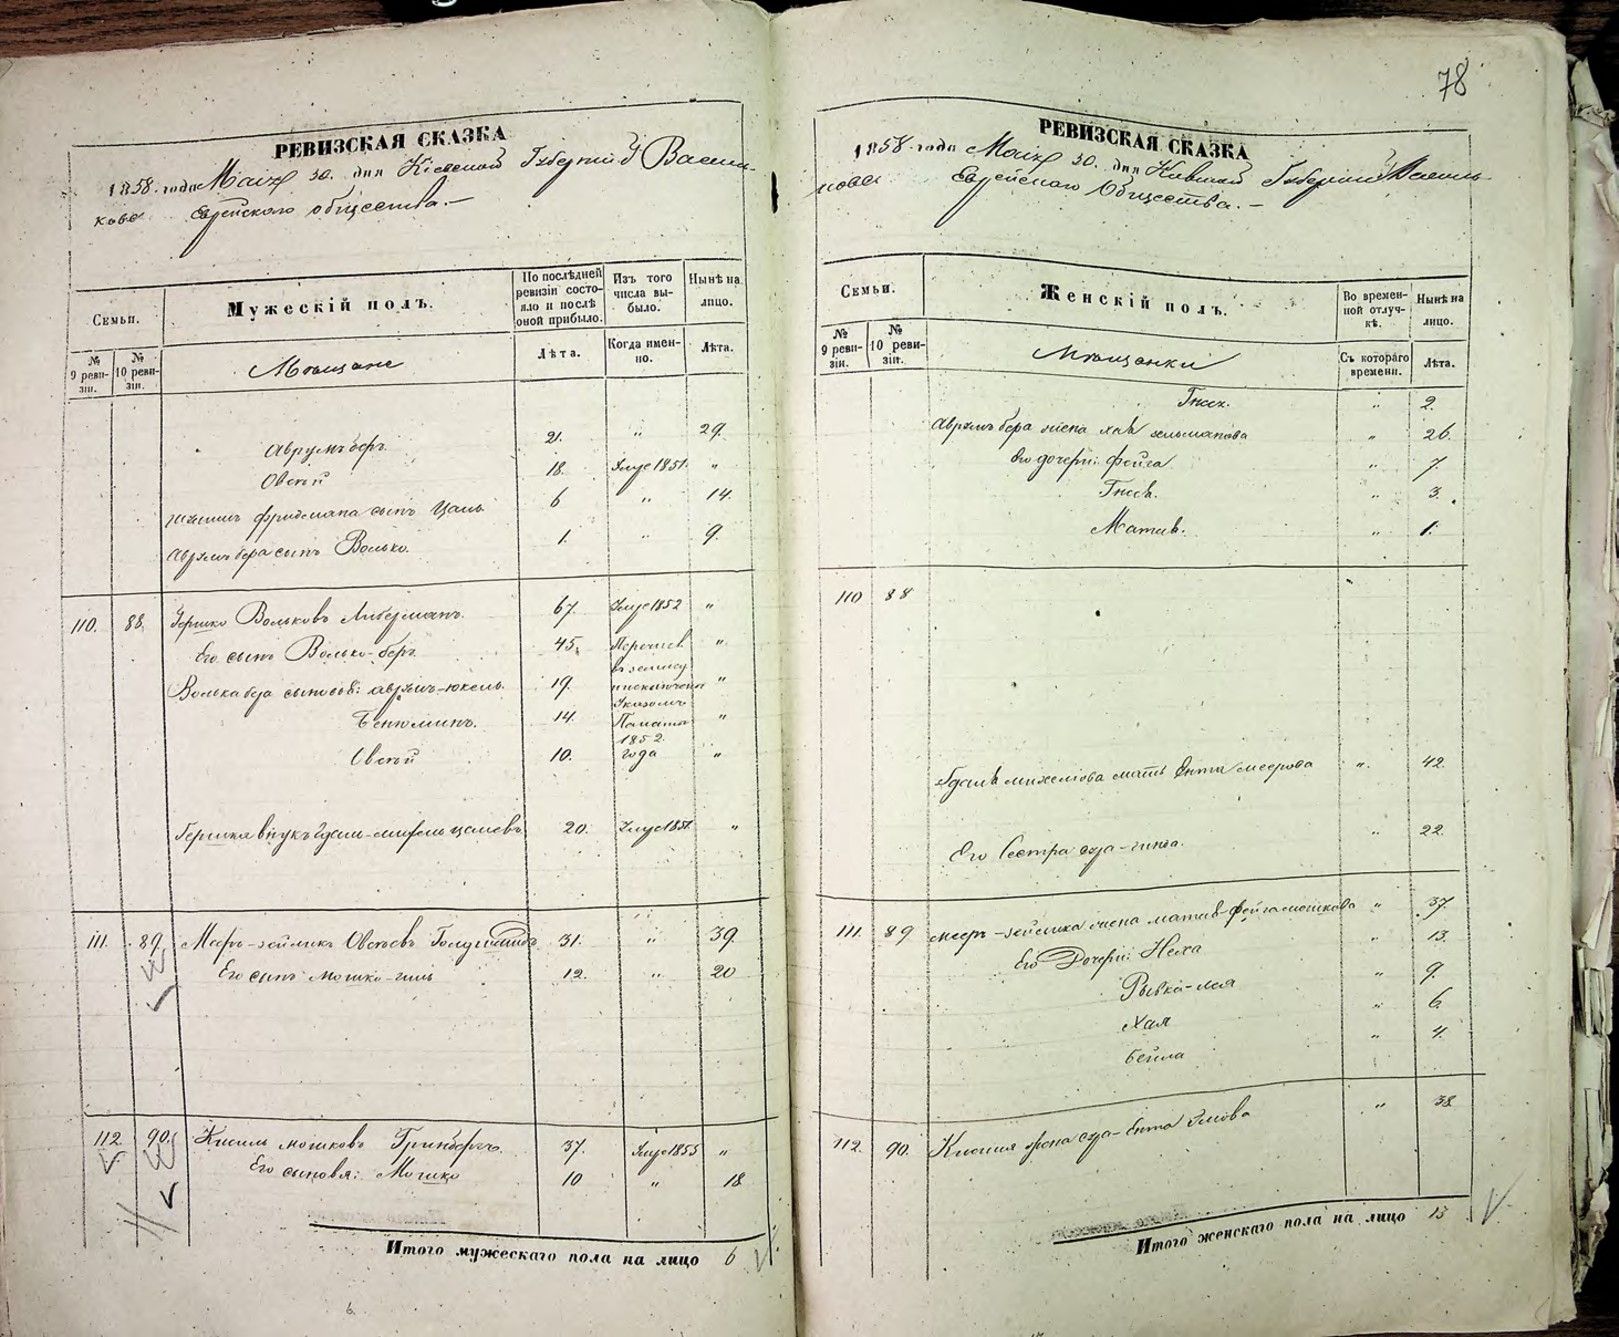 РЕВИЗСКАЯ СКАЗКА
1858. года Маія 30. дня Кіевской Губерніи Г Василь-
кова Еврейского общества.—
Семьи.
Мужескій полъ.
По послѣдней ревизіи состояло и послѣ оной прибыло.
Изъ того числа выбыло.
Нынѣ на лицо.
№ 9 ревизіи.
№ 10 ревизіи.
Мѣщане
Лѣта.
Когда именно.
Лѣта.
Аврумъ беръ 21. " 29.
Овсѣй 18. Умре 1851. "
фридмана сынъ 6 " 14.
Аврумъ бера сынъ Волько. 1. " 9.
110. 88. Гершко Вольковъ Либерманъ. 67. Умре 1852 "
Его сынъ Волько-беръ 45. "
Волька бера сыновья: аврумъ-юкель. 19. "
Бенюминъ. 14. "
1852
Овсѣй 10. года "
Гершка внукъ 20. Умре 1851. "
111. 89. Мееръ-зейликъ Овсѣевъ 31. " 39.
Его сынъ мошко-гиль 12. " 20
112 90. Кисиль мошковъ Гринбергъ 37. Умре 1855 "
Его сыновья: Мошко 10 " 18
Итого мужескаго пола на лицо 6
78
РЕВИЗСКАЯ СКАЗКА
1858. года Маія 30. дня Кіевской Губерніи Г Василь-
кова Еврейского Общества.—
Семьи.
Женскій полъ.
Во временной отлучкѣ.
Нынѣ на лицо.
№ 9 ревизіи.
№ 10 ревизіи.
Мѣщанки
Съ котораго времени.
Лѣта.
" 2.
Аврумъ бера жена хая зельманова " 26.
Его дочери: фейга " 7.
Гнеся. " 3.
Матля. " 1.
110 88
мать Ента меерова " 42
Его Сестра " 22.
111. 89 мееръ-зейлика жена матля-фейга мошкова " 37.
Его Дочери: Неха " 13.
Рывка-лея " 9.
Хая " 6.
бейла " 4.
112. 90. Кисиля жена сура-Ента " 38
Итого женскаго пола на лицо 13